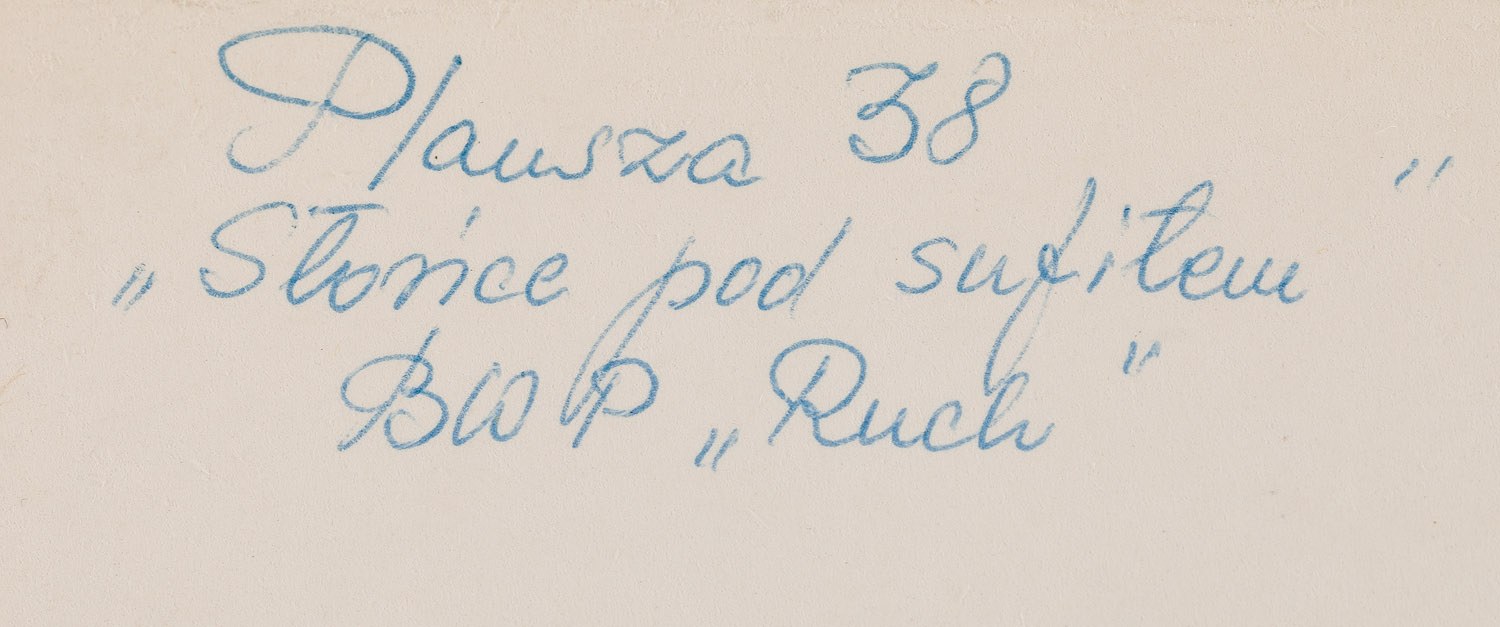 Plansza 38
„Słońce pod sufitem”
BWP „Ruch”